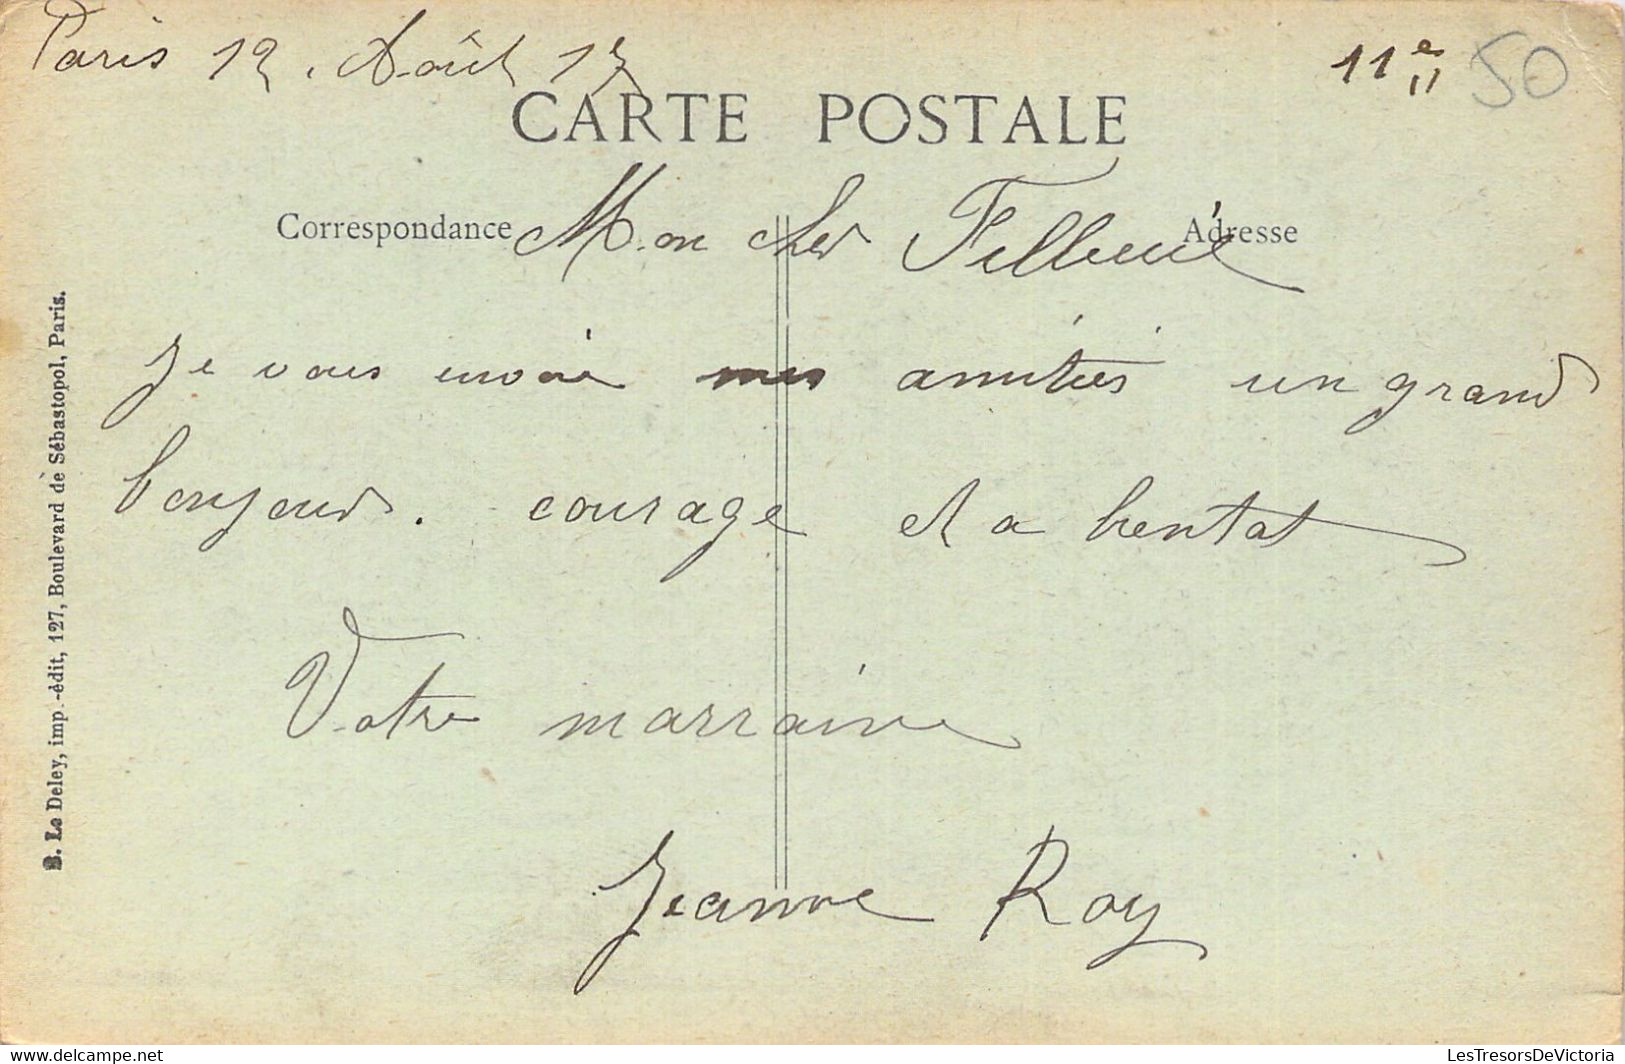 Paris 12. Août 17
11e 11 50
CARTE POSTALE
Correspondance Adresse
Mon cher Filleul
Je vous envoie mes amitiés un grand
bonjour. courage et a bentot
Votre marraine
Jeanne Roy
B. Le Deley, imp.-édit, 127, Boulevard de Sébastopol, Paris.
www.delcampe.net
LesTresorsDeVictoria